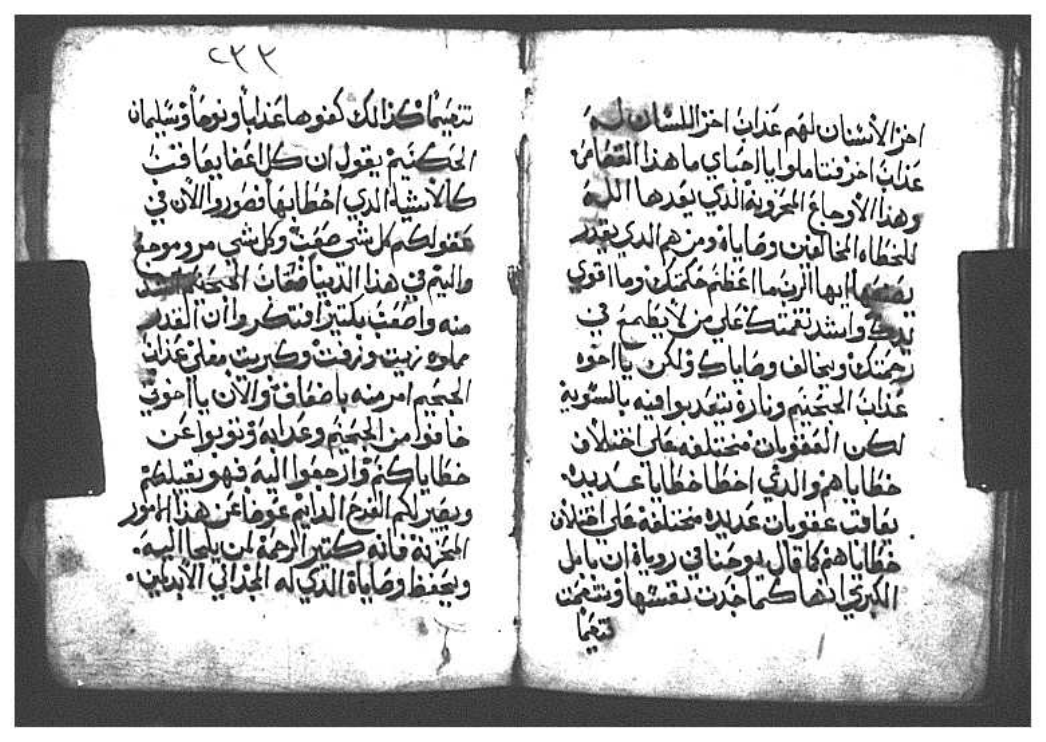 اخر الاسنان لهم عذاب اخر اللسان له
عذاب اخر فتاملوا يا احباي ما هذا القصاص
وهذا الاوجاع المحزونه الذي يعدها الله
للخطاه المخالفين وصاياه ومن هم الدي يقدر
يصفها ايها الرب ما اعظم حكمتك وما اقوي
يدك واشد نقمتك علي من لا يطمع في
رحمتك ويخالف وصاياك ولكن يا اخوه
عذاب الجحيم وناره يتعدبوا فيه بالسويه
لكن العقوبات مختلفه علي اختلاف
خطاياهم والدي اخطا خطايا عديده
يعاقب عقوبات عديده مختلفه علي اختلاف
خطاياهم كما قال يوحنا في روياه ان بابل
الكبري انها كما مجدت نفسها وتنعمت
تنعيما
٢٣٣
تنعيما كذالك كفوها عذابا ونوحا وسليمان
الحكيم يقول ان كل اعضا يعاقب
كالاشيا الدي اخطا بها فصوروا الان في
عقولكم كل شي صعب وكل شي مر وموجع
واليم في هذا الدنيا فعذاب الجحيم اشد
منه واصعب بكتير افتكروا ان القدر
مملوه زيت وزفت وكبريت مغلي عذاب
الجحيم امر منه باضعاف والان يا اخوتي
خافوا من الجحيم وعدابه وتوبوا عن
خطاياكم وارجعوا اليه فهو يقبلكم
ويصير لكم الفرح الدايم عوضا عن هذا الامور
المحزنه فانه كتير الرحمه لمن يلجا اليه.
ويحفظ وصاياه الذي له المجد الي الابدين.